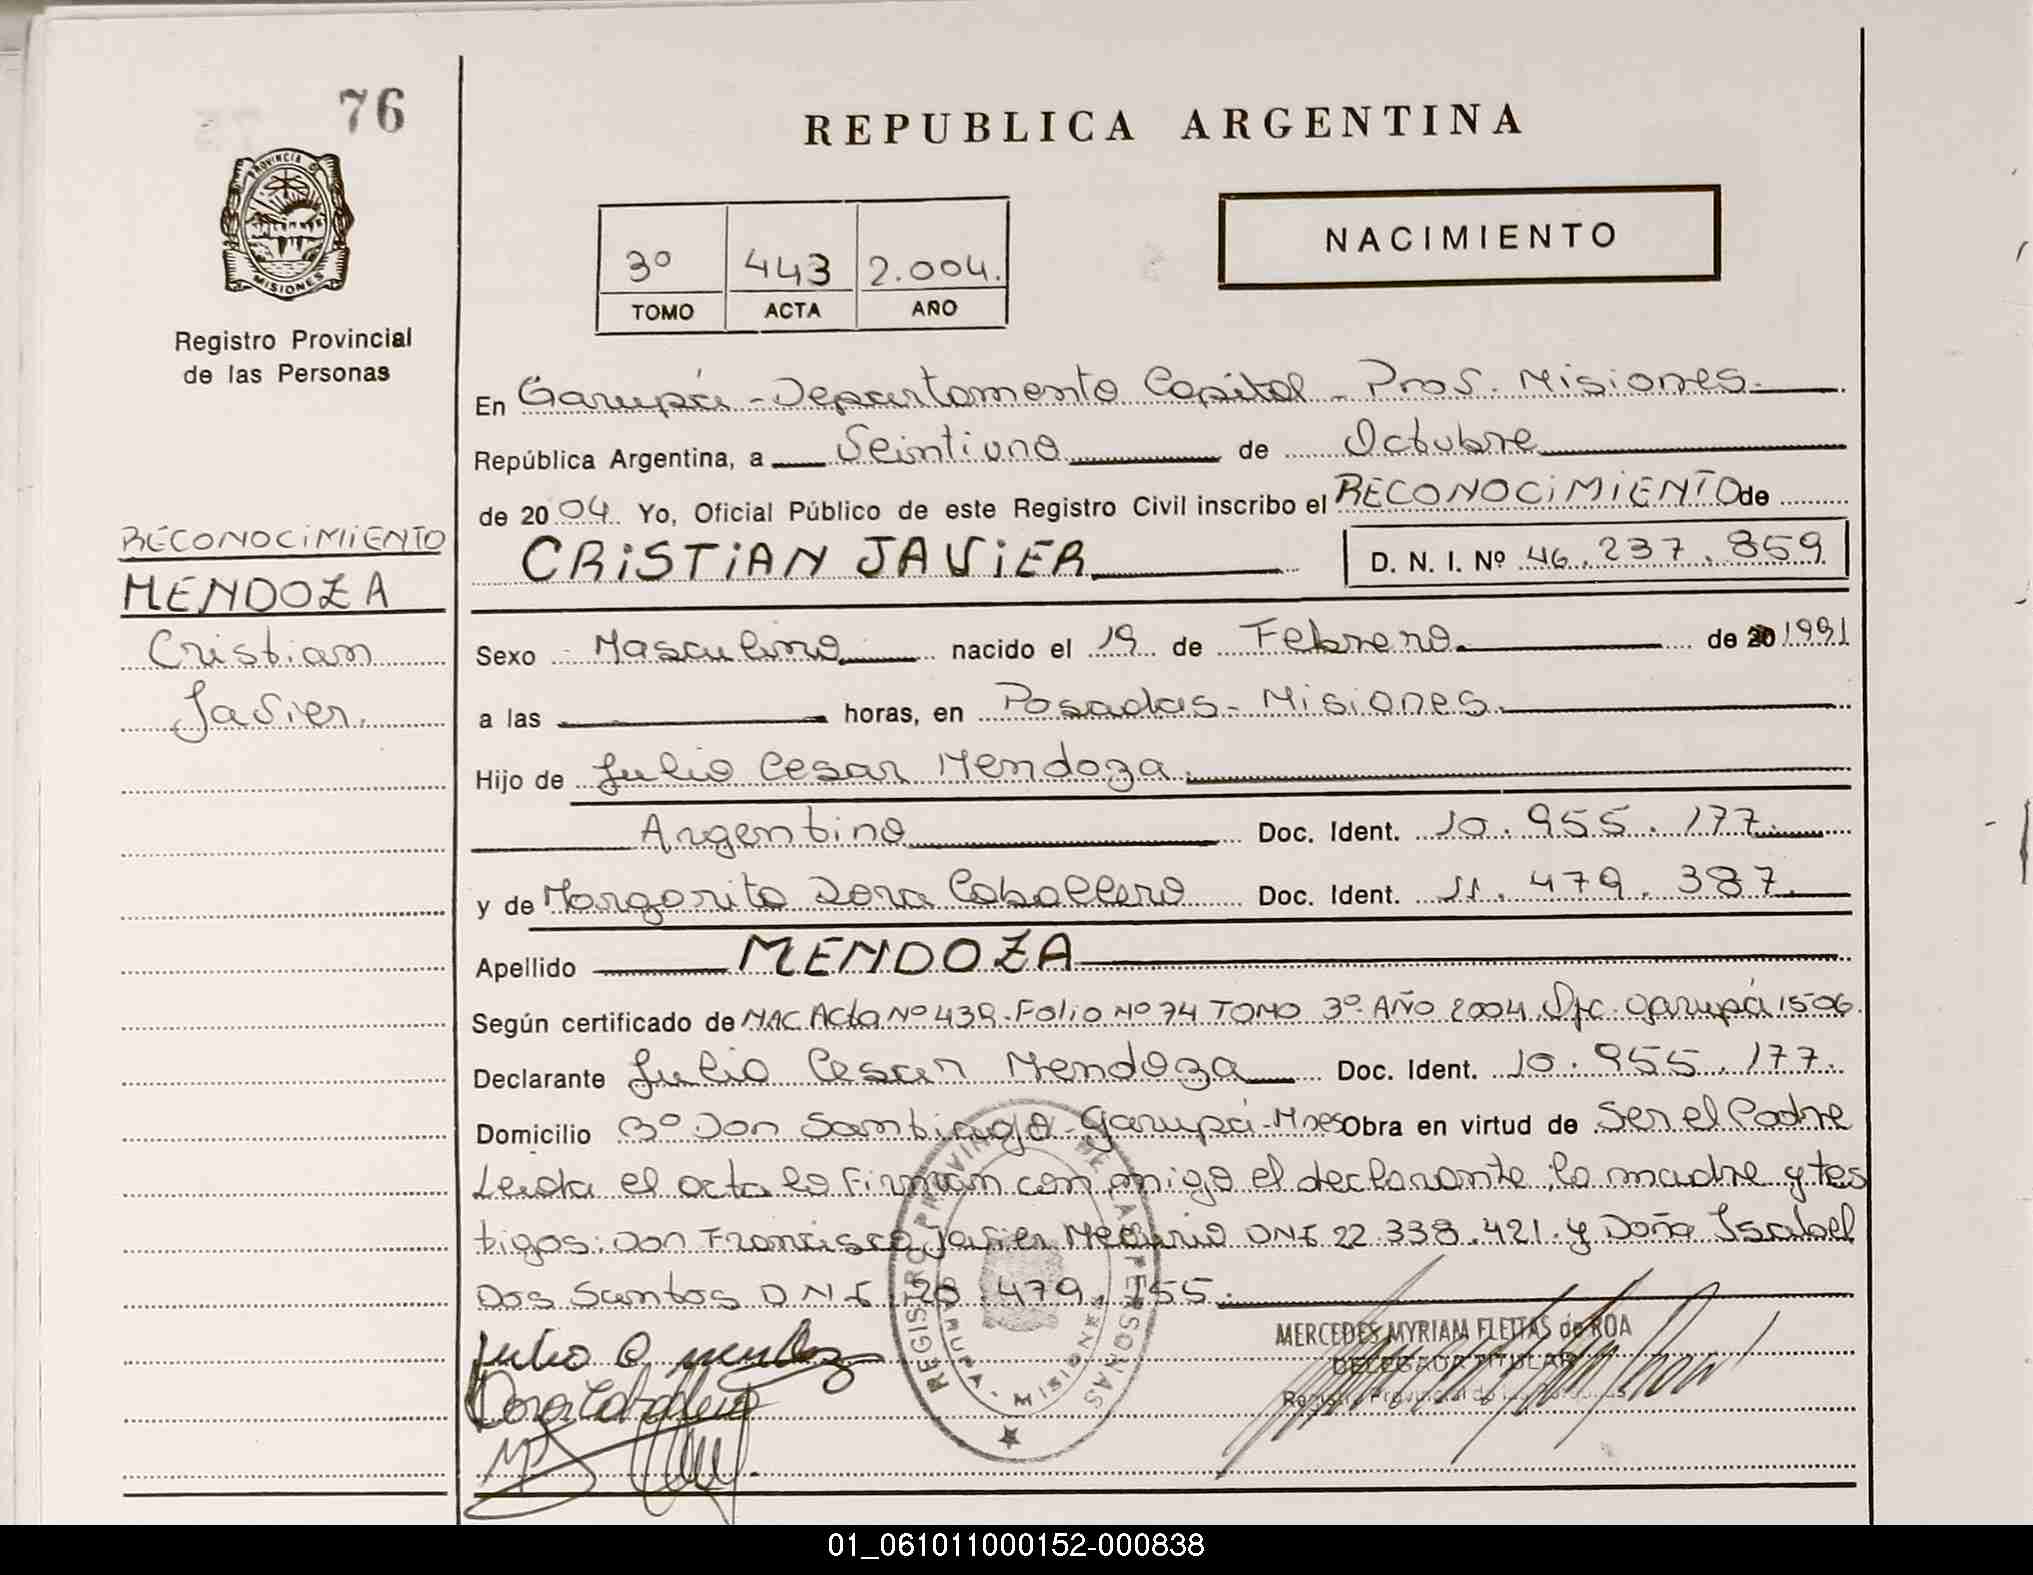 76
PROVINCIA DE
MISIONES
Registro Provincial
de las Personas
RECONOCIMIENTO
MENDOZA
Cristian
Javier.
REPUBLICA ARGENTINA
3º 443 2.004.
TOMO ACTA AÑO
NACIMIENTO
En Garupá - Departamento Capital - Prov. Misiones.
República Argentina, a Veintiuno de Octubre
de 2004 Yo, Oficial Público de este Registro Civil inscribo el RECONOCIMIENTO de
CRISTIAN JAVIER D. N. I. Nº 46.237.859
Sexo Masculino nacido el 19 de Febrero de 20 1991
a las horas, en Posadas - Misiones.
Hijo de Julio Cesar Mendoza.
Argentino Doc. Ident. 10.955.177.
y de Margarita Dora Caballero Doc. Ident. 11.479.387.
Apellido MENDOZA
Según certificado de NAC Acta Nº 439. Folio Nº 74 TOMO 3º AÑO 2004. Ofc. Garupá 1506.
Declarante Julio Cesar Mendoza Doc. Ident. 10.955.177.
Domicilio Bº Don Santiago - Garupá - Mnes Obra en virtud de Ser el Padre
Leida el acta la Firman con migo el declarante, la madre y tes
tigos: Don Francisco Javier DNI 22.338.421. y Doña Isabel
Dos Santos DNI 479.
Julio C mendoza
Dora Caballero
REGISTRO PROVINCIAL DE LAS PERSONAS
GARUPA - MISIONES
MERCEDES MYRIAM FLEITAS de ROA
DELEGADA TITULAR
Registro Provincial de las Personas
01_061011000152-000838